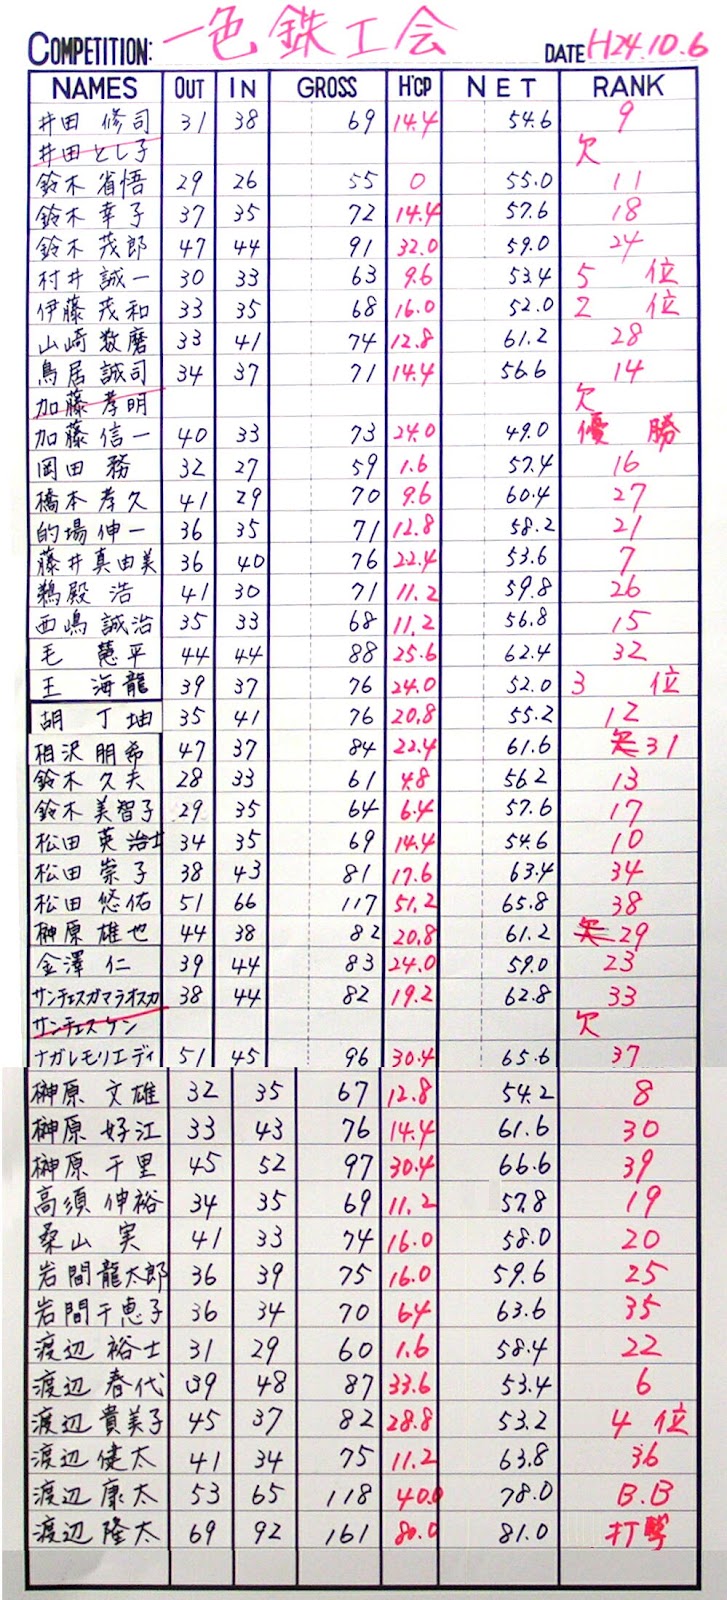 COMPETITION: 一色鉄工会 DATE H24.10.6
NAMES OUT IN GROSS H'CP NET RANK
井田 修司 31 38 69 14.4 54.6 9
井田とし子 欠
鈴木 省悟 29 26 55 0 55.0 11
鈴木 幸子 37 35 72 14.4 57.6 18
鈴木 茂郎 47 44 91 32.0 59.0 24
村井 誠一 30 33 63 9.6 53.4 5位
伊藤 茂和 33 35 68 16.0 52.0 2位
山崎 数磨 33 41 74 12.8 61.2 28
鳥居 誠司 34 37 71 14.4 56.6 14
加藤 孝明 欠
加藤 信一 40 33 73 24.0 49.0 優勝
岡田 務 32 27 59 1.6 57.4 16
橋本 孝久 41 29 70 9.6 60.4 27
的場 伸一 36 35 71 12.8 58.2 21
藤井真由美 36 40 76 22.4 53.6 7
鵜殿 浩 41 30 71 11.2 59.8 26
西嶋 誠治 35 33 68 11.2 56.8 15
毛 慧平 44 44 88 25.6 62.4 32
王 海龍 39 37 76 24.0 52.0 3位
胡 丁坤 35 41 76 20.8 55.2 12
相沢 朋希 47 37 84 22.4 61.6 欠 31
鈴木 久夫 28 33 61 4.8 56.2 13
鈴木 美智子 29 35 64 6.4 57.6 17
松田 英治 34 35 69 14.4 54.6 10
松田 崇子 38 43 81 17.6 63.4 34
松田 悠佑 51 66 117 51.2 65.8 38
榊原 雄也 44 38 82 20.8 61.2 欠 29
金澤 仁 39 44 83 24.0 59.0 23
サンチェスガマラオスカ 38 44 82 19.2 62.8 33
サンチェスケン 欠
ナガレモリエディ 51 45 96 30.4 65.6 37
榊原 文雄 32 35 67 12.8 54.2 8
榊原 好江 33 43 76 14.4 61.6 30
榊原 千里 45 52 97 30.4 66.6 39
高須 伸裕 34 35 69 11.2 57.8 19
桑山 実 41 33 74 16.0 58.0 20
岩間龍太郎 36 39 75 16.0 59.6 25
岩間千恵子 36 34 70 6.4 63.6 35
渡辺 裕士 31 29 60 1.6 58.4 22
渡辺 春代 39 48 87 33.6 53.4 6
渡辺 貴美子 45 37 82 28.8 53.2 4位
渡辺 健太 41 34 75 11.2 63.8 36
渡辺 康太 53 65 118 40.0 78.0 B.B
渡辺 隆太 69 92 161 80.0 81.0 打撃